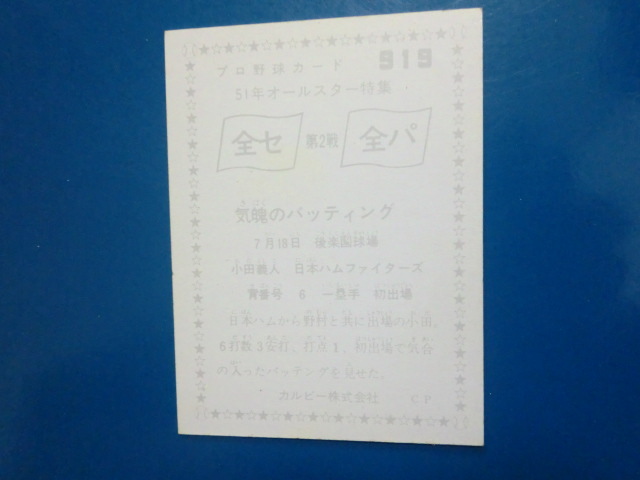 プロ野球カード 919
51年オールスター特集
全セ 第2戦 全パ
気魄のバッティング
7月18日 後楽園球場
小田義人 日本ハムファイターズ
背番号 6 一塁手 初出場
日本ハムから野村と共に出場の小田。
6打数3安打、打点1、初出場で気合
の入ったバッティングを見せた。
カルビー株式会社 CP